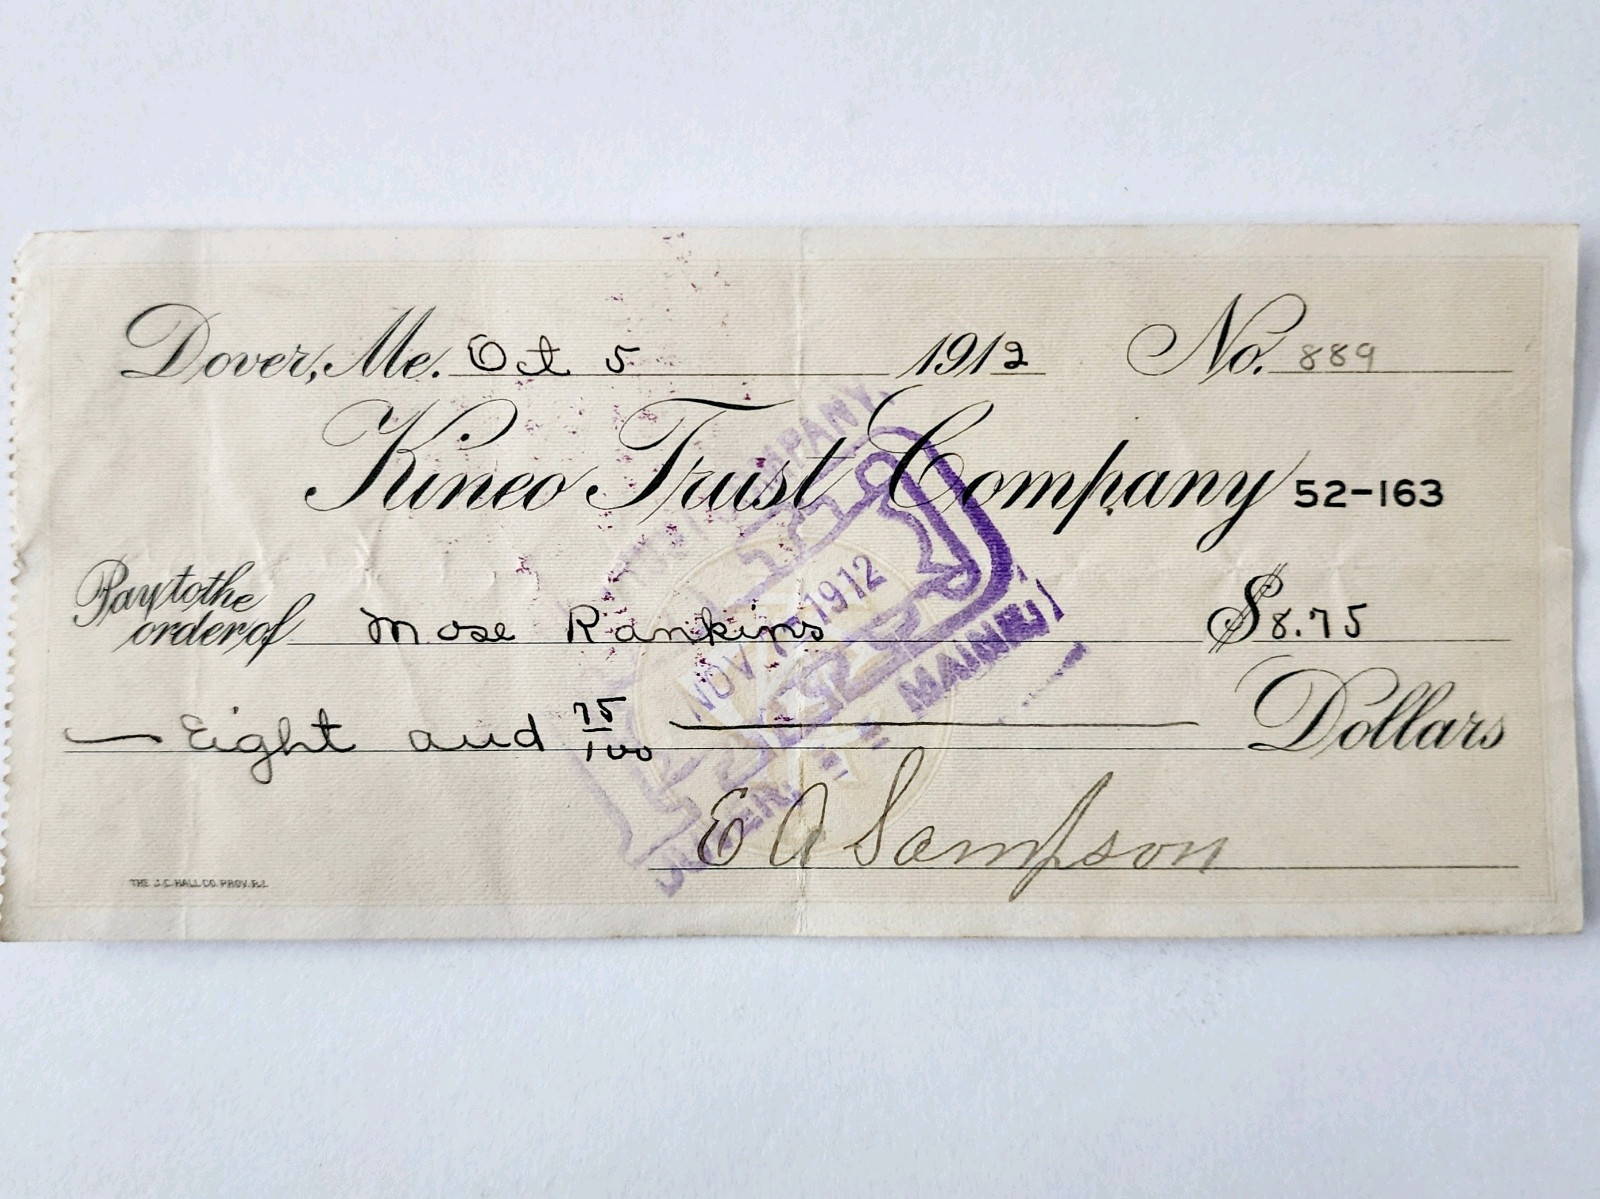 Dover, Me. Oct 5 1912 No. 889
Kineo Trust Company 52-163
Pay to the
order of Mose Rankins $8.75
Eight and 75/100 Dollars
E A Sampson
THE J.C. HALL CO. PROV. R.I.
TRUST COMPANY
NOV 1912
DOVER, MAINE